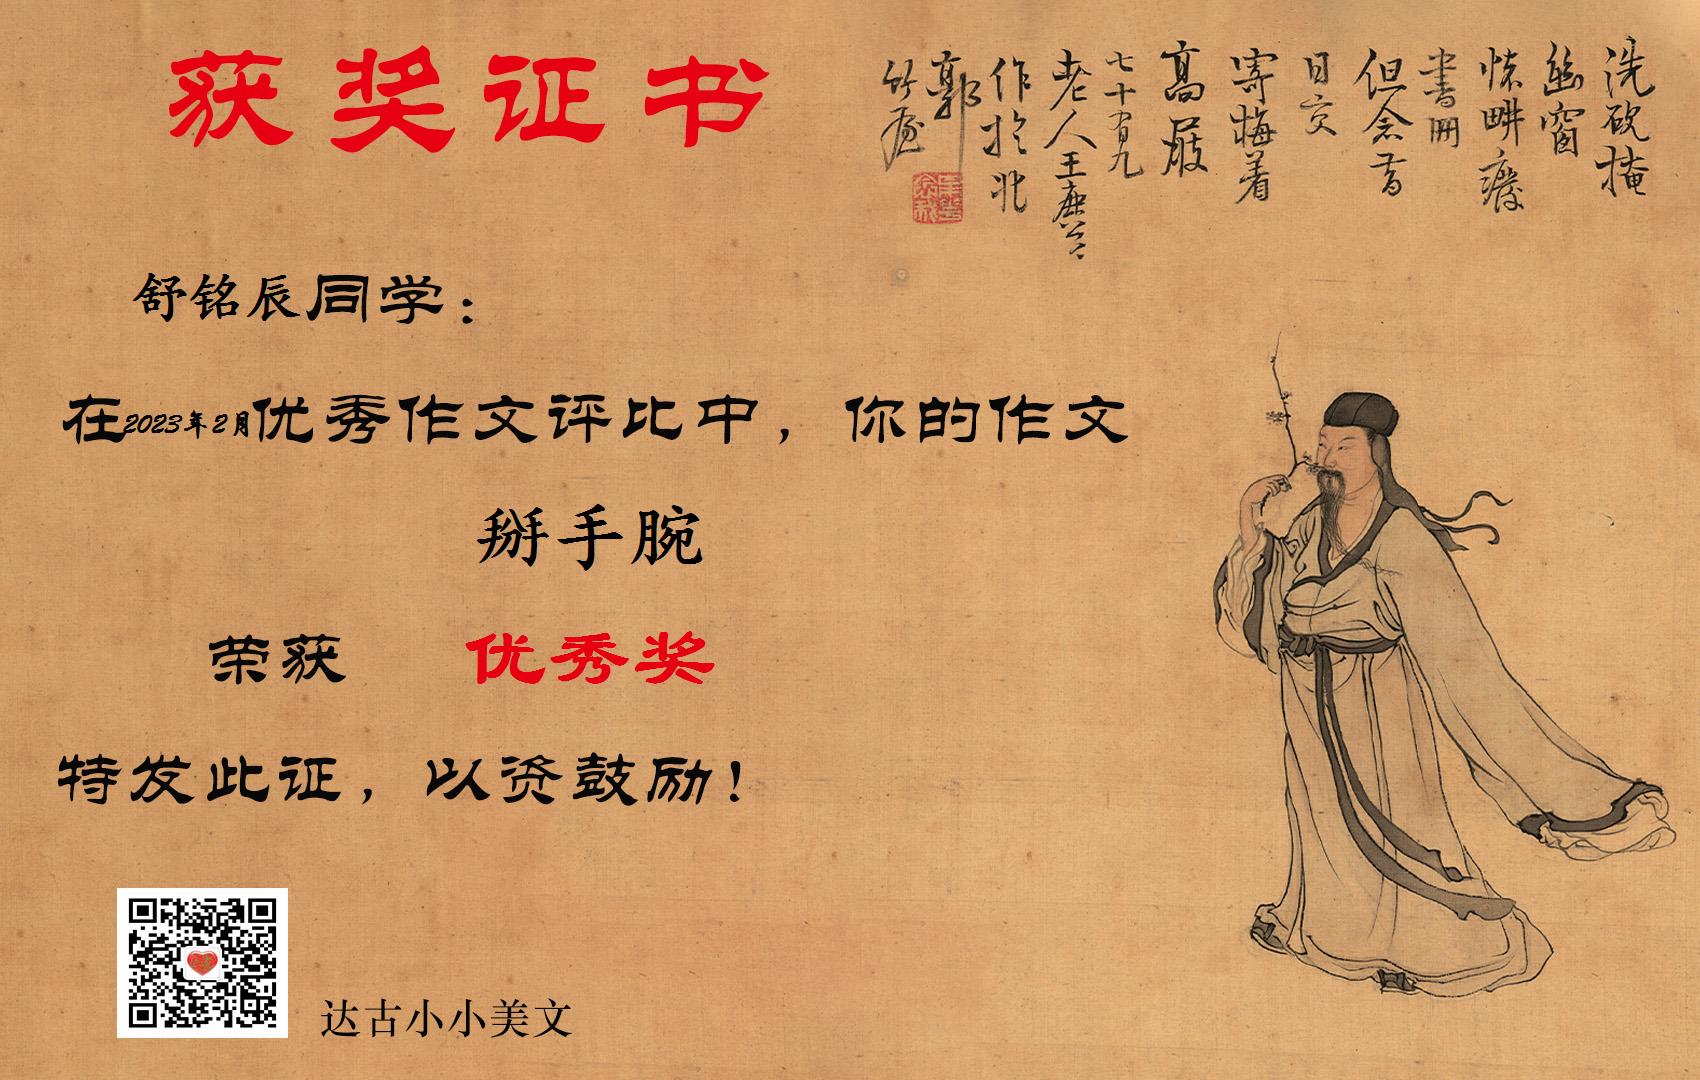 获奖证书
洗砚掩
幽窗
怀畊癈
书册
但念昔
日交
寄梅着
高屐
七十有九
老人王
作于北
郭
竹
舒铭辰同学：
在2023年2月优秀作文评比中，你的作文
掰手腕
荣获 优秀奖
特发此证，以资鼓励！
达古小小美文